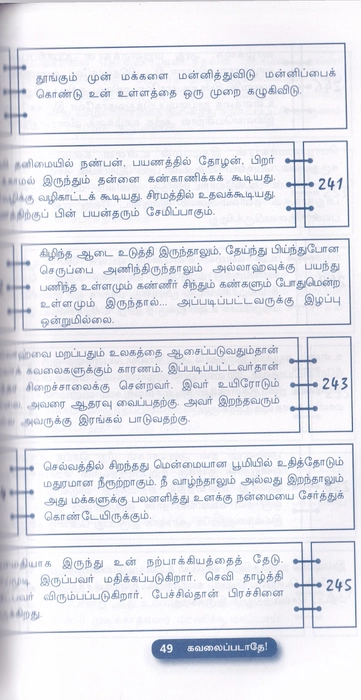 தூங்கும் முன் மக்களை மன்னித்துவிடு மன்னிப்பைக்
கொண்டு உன் உள்ளத்தை ஒரு முறை கழுகிவிடு.
தனிமையில் நண்பன், பயணத்தில் தோழன், பிறர்
இருந்தும் தன்னை கண்காணிக்கக் கூடியது.
வழிகாட்டக் கூடியது. சிரமத்தில் உதவக்கூடியது.
பின் பயன்தரும் சேமிப்பாகும்.
241
கிழிந்த ஆடை உடுத்தி இருந்தாலும், தேய்ந்து பிய்ந்துபோன
செருப்பை அணிந்திருந்தாலும் அல்லாஹ்வுக்கு பயந்து
பணிந்த உள்ளமும் கண்ணீர் சிந்தும் கண்களும் போதுமென்ற
உள்ளமும் இருந்தால்... அப்படிப்பட்டவருக்கு இழப்பு
ஒன்றுமில்லை.
மறப்பதும் உலகத்தை ஆசைப்படுவதும்தான்
கவலைகளுக்கும் காரணம். இப்படிப்பட்டவர்தான்
சிறைச்சாலைக்கு சென்றவர். இவர் உயிரோடும்
அவரை ஆதரவு வைப்பதற்கு. அவர் இறந்தவரும்
அவருக்கு இரங்கல் பாடுவதற்கு.
243
செல்வத்தில் சிறந்தது மென்மையான பூமியில் உதித்தோடும்
மதுரமான நீரூற்றாகும். நீ வாழ்ந்தாலும் அல்லது இறந்தாலும்
அது மக்களுக்கு பலனளித்து உனக்கு நன்மையை சேர்த்துக்
கொண்டேயிருக்கும்.
இருந்து உன் நற்பாக்கியத்தைத் தேடு.
இருப்பவர் மதிக்கப்படுகிறார். செவி தாழ்த்தி
விரும்பப்படுகிறார். பேச்சில்தான் பிரச்சினை
245
49 கவலைப்படாதே!